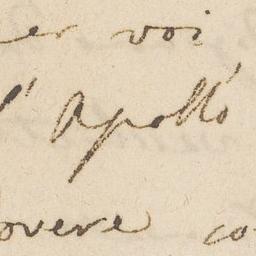 er voi
l'Apollo
overe co